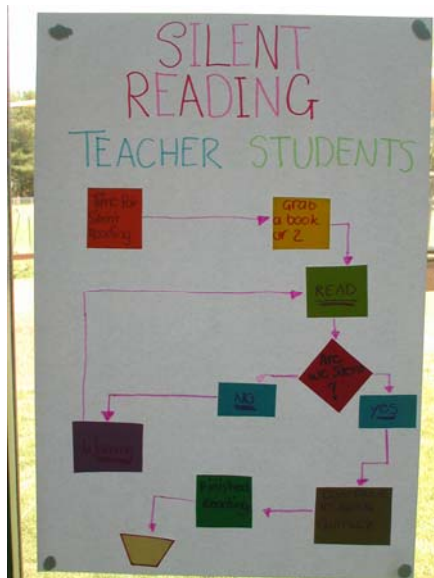 SILENT
READING
TEACHER STUDENTS
Time for
Silent
Reading
Grab
a book
or 2
READ
Are
we silent
?
NO
YES
Warning
Finished
Reading